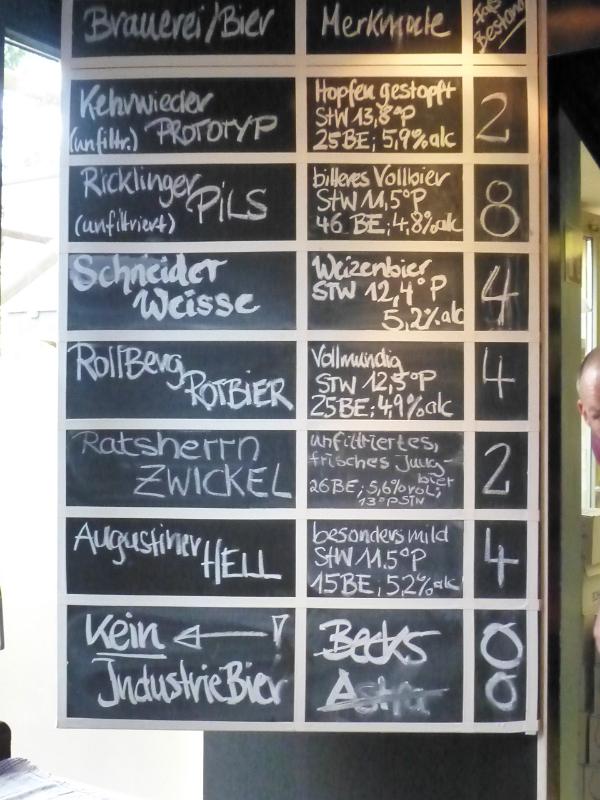 Brauerei/Bier
Merkmale
Fass
Bestand
Kehrwieder
(unfiltr.) PROTOTYP
Hopfen gestopft
StW 13,8°P
25 BE; 5,9% alc
2
Ricklinger
PiLS
(unfiltriert)
bitteres Vollbier
StW 11,5°P
46 BE; 4,8% alc
8
Schneider
Weisse
Weizenbier
STW 12,4°P
5,2% alc
4
RollBerg
ROTBIER
Vollmundig
STW 12,5°P
25BE; 4,9% alc
4
Ratsherrn
ZWICKEL
unfiltriertes,
frisches Jung-
bier
26 BE; 5,6% vol;
13°P STW
2
Augustiner
HELL
besonders mild
StW 11.5°P
15 BE, 5,2% alc
4
Kein
IndustrieBier
Becks
Astra
0
0